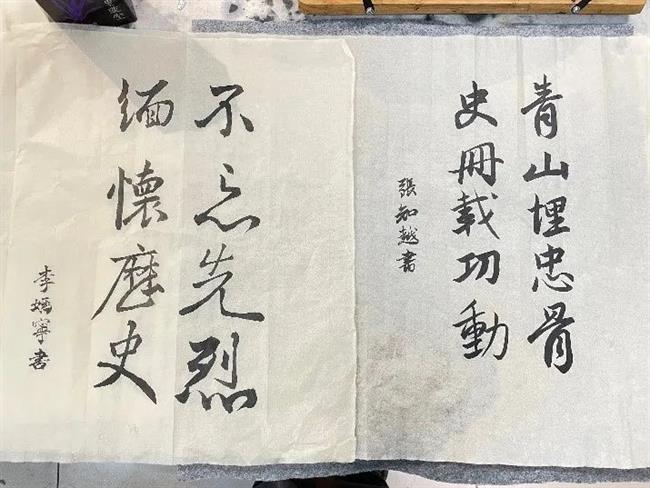 青山埋忠骨
史冊載功動
張知越書
不忘先烈
緬懷歷史
李嫣寧書